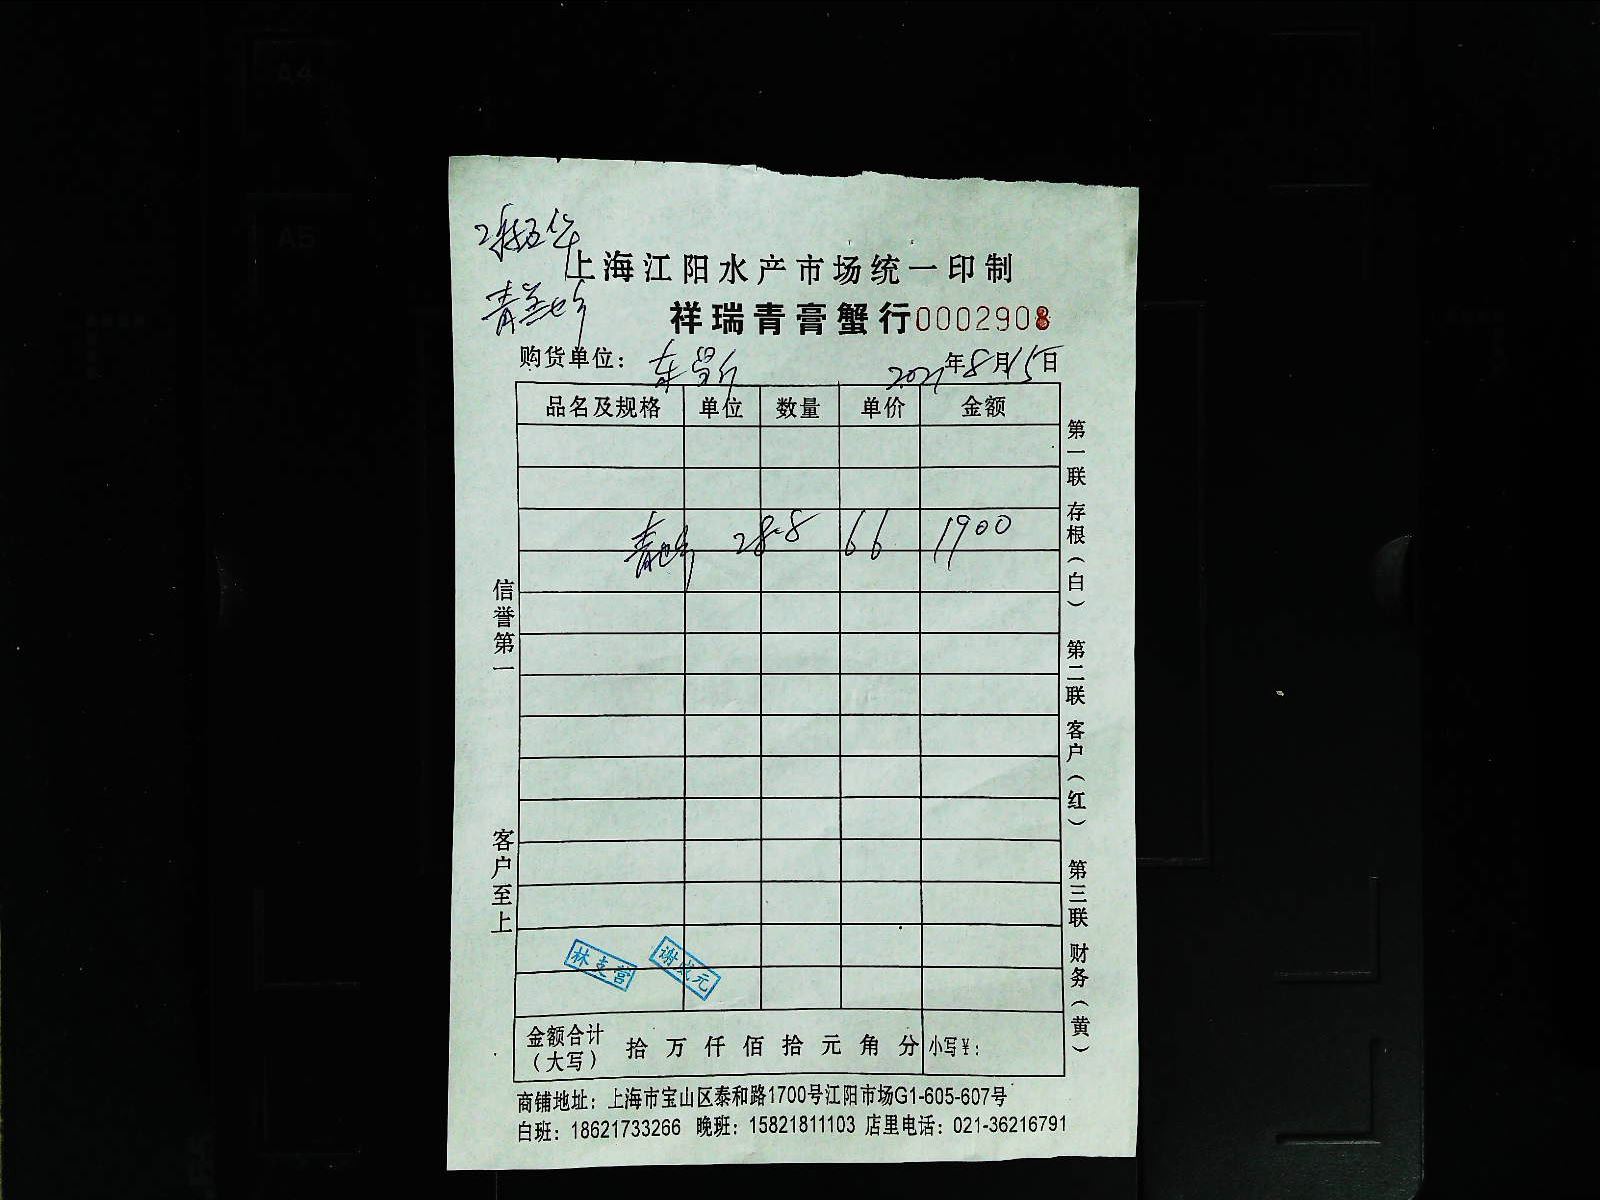 上海江阳水产市场统一印制
祥瑞青膏蟹行0002908
购货单位：
2021年8月15日
品名及规格 单位 数量 单价 金额
28.8 66 1900
信誉第一
客户至上
第一联 存根（白） 第二联 客户（红） 第三联 财务（黄）
林支营 谢成元
金额合计（大写） 拾 万 仟 佰 拾 元 角 分 小写￥：
商铺地址：上海市宝山区泰和路1700号江阳市场G1-605-607号
白班：18621733266 晚班：15821811103 店里电话：021-36216791